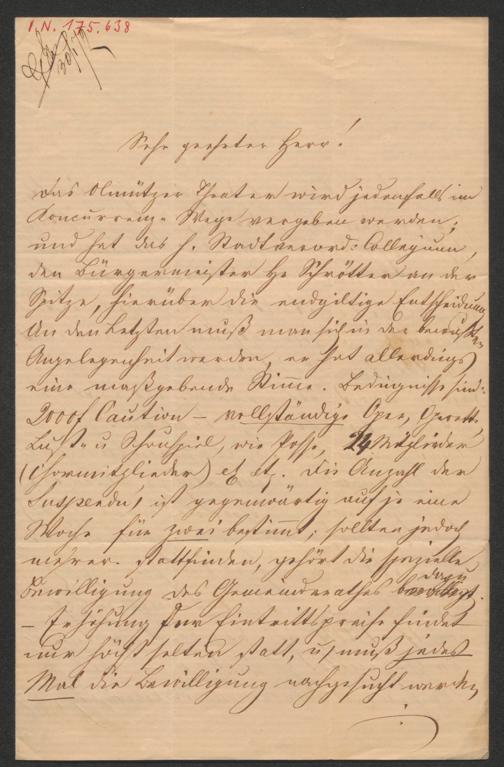 I.N. 175.638
Sehr geehrter Herr!
Das Olmützer Theater wird jedenfalls im
Koncurrenz-Wege vergeben werden,
und hat das h. Stadtverord: Collegium,
den Bürgermeister He Schrötter an der
Spitze, hierüber die endgiltige Entscheidung
An den Letzten muß man sich in der bewußten
Angelegenheit wenden, er hat allerdings
eine maßgebende Stimme. Bedingnisse sind:
2000f Caution – vollständige Oper, Operette
Lust- u Schauspiel, wie Posse, 24 Mitglieder
(Chormitglieder) etc etc. Die Anzahl der
Suspendu, ist gegenwärtig auf je eine
Woche für zwei bestimmt; sollten jedoch
mehrere stattfinden, gehört die spezielle
Bewilligung des Gemeinderathes dazu
– Erhöhung der Eintrittspreise findet
nur höchst selten statt, u. muß jedes
Mal die Bewilligung nachgesucht werden,